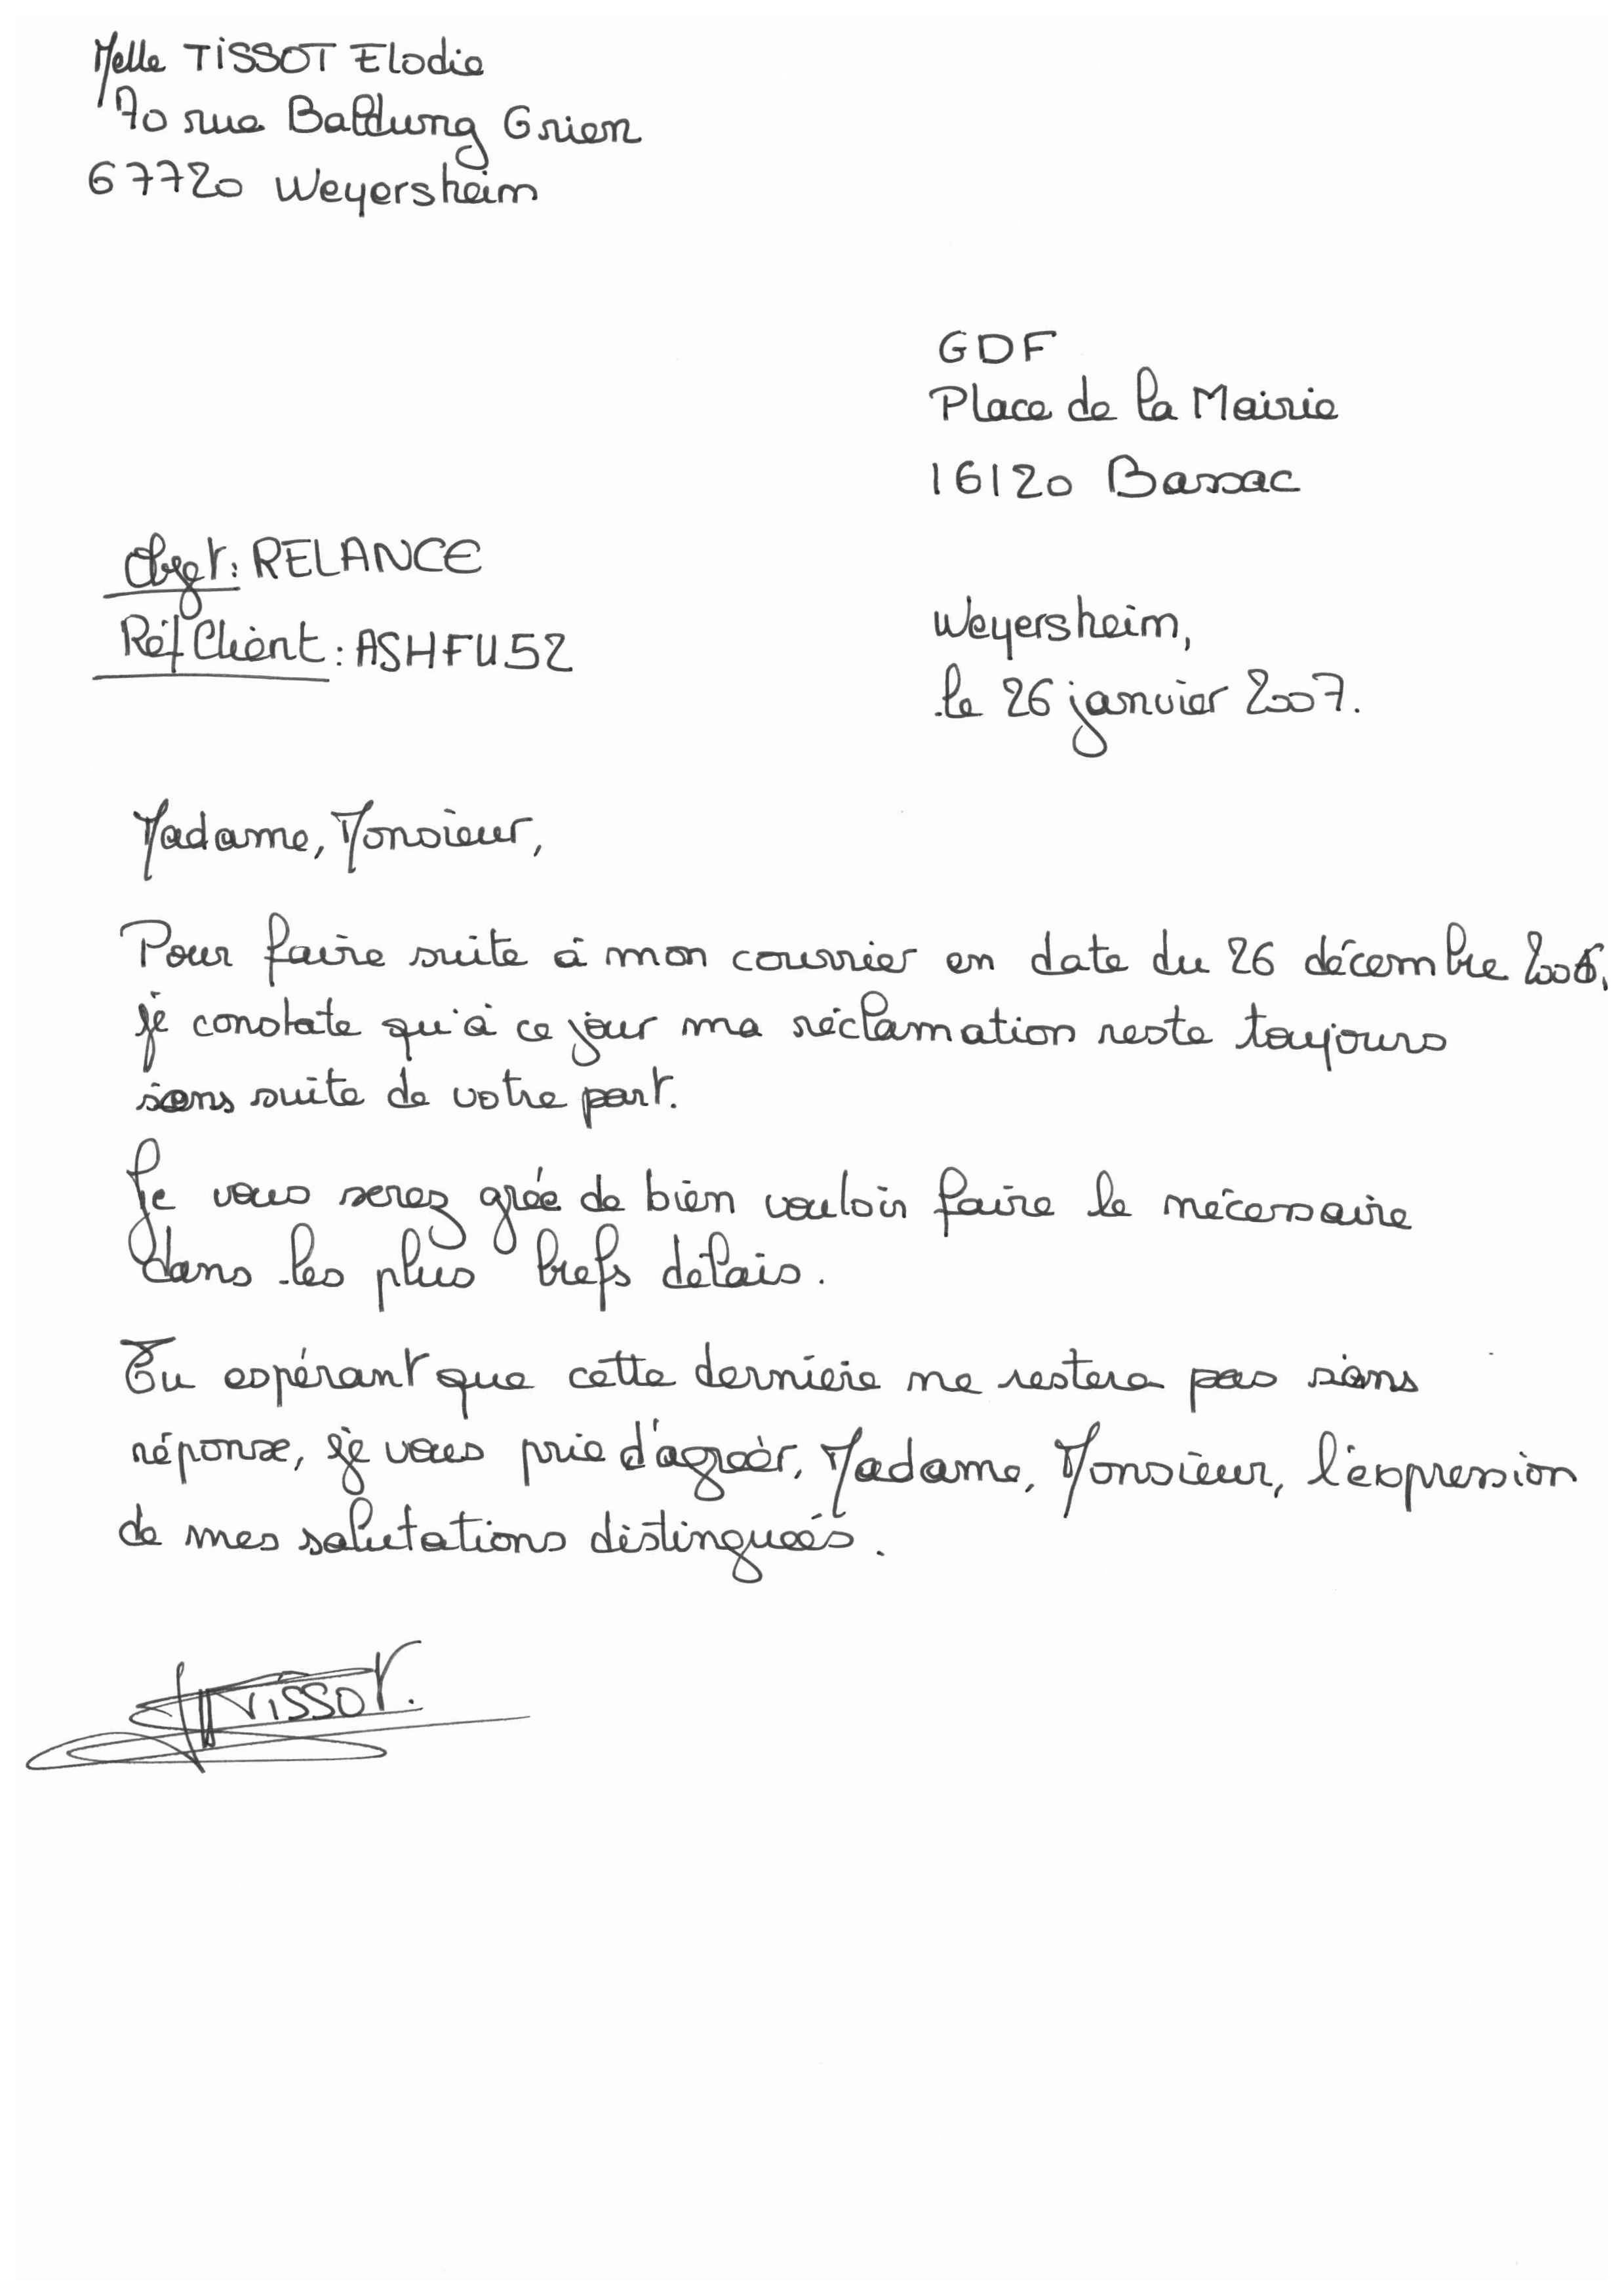 Melle TISSOT Elodie
70 rue Baldung Grien
67720 Weyersheim
GDF
Place de la Mairie
16120 Bassac
Objet : RELANCE
Réf Client : ASHFU52
Weyersheim,
le 26 janvier 2007.
Madame, Monsieur,
Pour faire suite à mon courrier en date du 26 décembre 2006,
je constate qu'à ce jour ma réclamation reste toujours
sans suite de votre part.
Je vous serez grée de bien vouloir faire le nécessaire
dans les plus brefs délais.
En espérant que cette dernière ne restera pas sans
réponse, je vous prie d'agréer, Madame, Monsieur, l'expression
de mes salutations distinguées.
TISSOT.